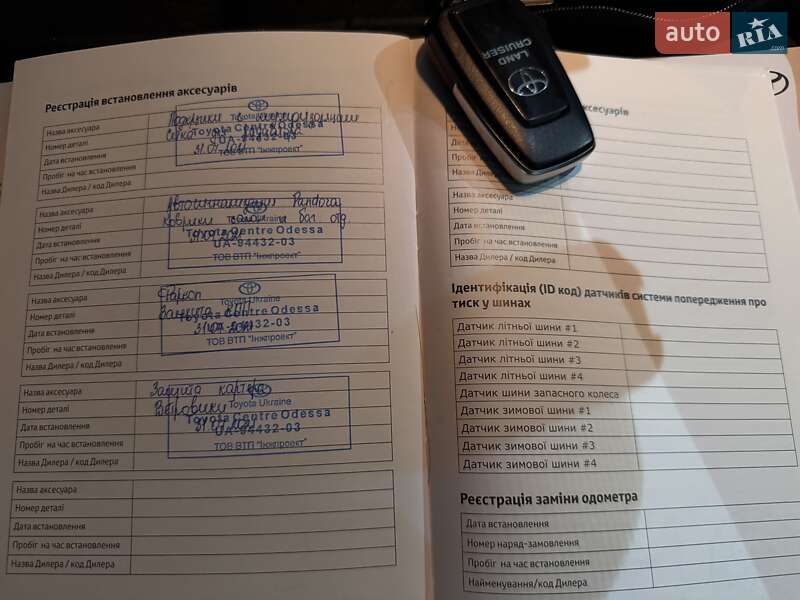 auto RIA .com
LAND
CRUISER
Реєстрація встановлення аксесуарів
Назва аксесуара
Номер деталі
Дата встановлення
Пробіг на час встановлення
Назва Дилера / код Дилера
Toyota Centre Odessa
UA-94432-03
ТОВ ВТП "Інжпроект"
Назва аксесуара Автосигнализация Pandora
Номер деталі Коврики
Дата встановлення
Пробіг на час встановлення
Назва Дилера / код Дилера
Toyota Centre Odessa
UA-94432-03
ТОВ ВТП "Інжпроект"
Назва аксесуара Фаркоп
Номер деталі Защита
Дата встановлення
Пробіг на час встановлення
Назва Дилера / код Дилера
Toyota Ukraine
Toyota Centre Odessa
UA-94432-03
ТОВ ВТП "Інжпроект"
Назва аксесуара Защита картера
Номер деталі Ветровики
Дата встановлення
Пробіг на час встановлення
Назва Дилера / код Дилера
Toyota Ukraine
Toyota Centre Odessa
UA-94432-03
ТОВ ВТП "Інжпроект"
Назва аксесуара
Номер деталі
Дата встановлення
Пробіг на час встановлення
Назва Дилера / код Дилера
Назва аксесуара
Номер деталі
Дата встановлення
Пробіг на час встановлення
Назва Дилера / код Дилера
Ідентифікація (ID код) датчиків системи попередження про
тиск у шинах
Датчик літньої шини #1
Датчик літньої шини #2
Датчик літньої шини #3
Датчик літньої шини #4
Датчик шини запасного колеса
Датчик зимової шини #1
Датчик зимової шини #2
Датчик зимової шини #3
Датчик зимової шини #4
Реєстрація заміни одометра
Дата встановлення
Номер наряд-замовлення
Пробіг на час встановлення
Найменування/код Дилера